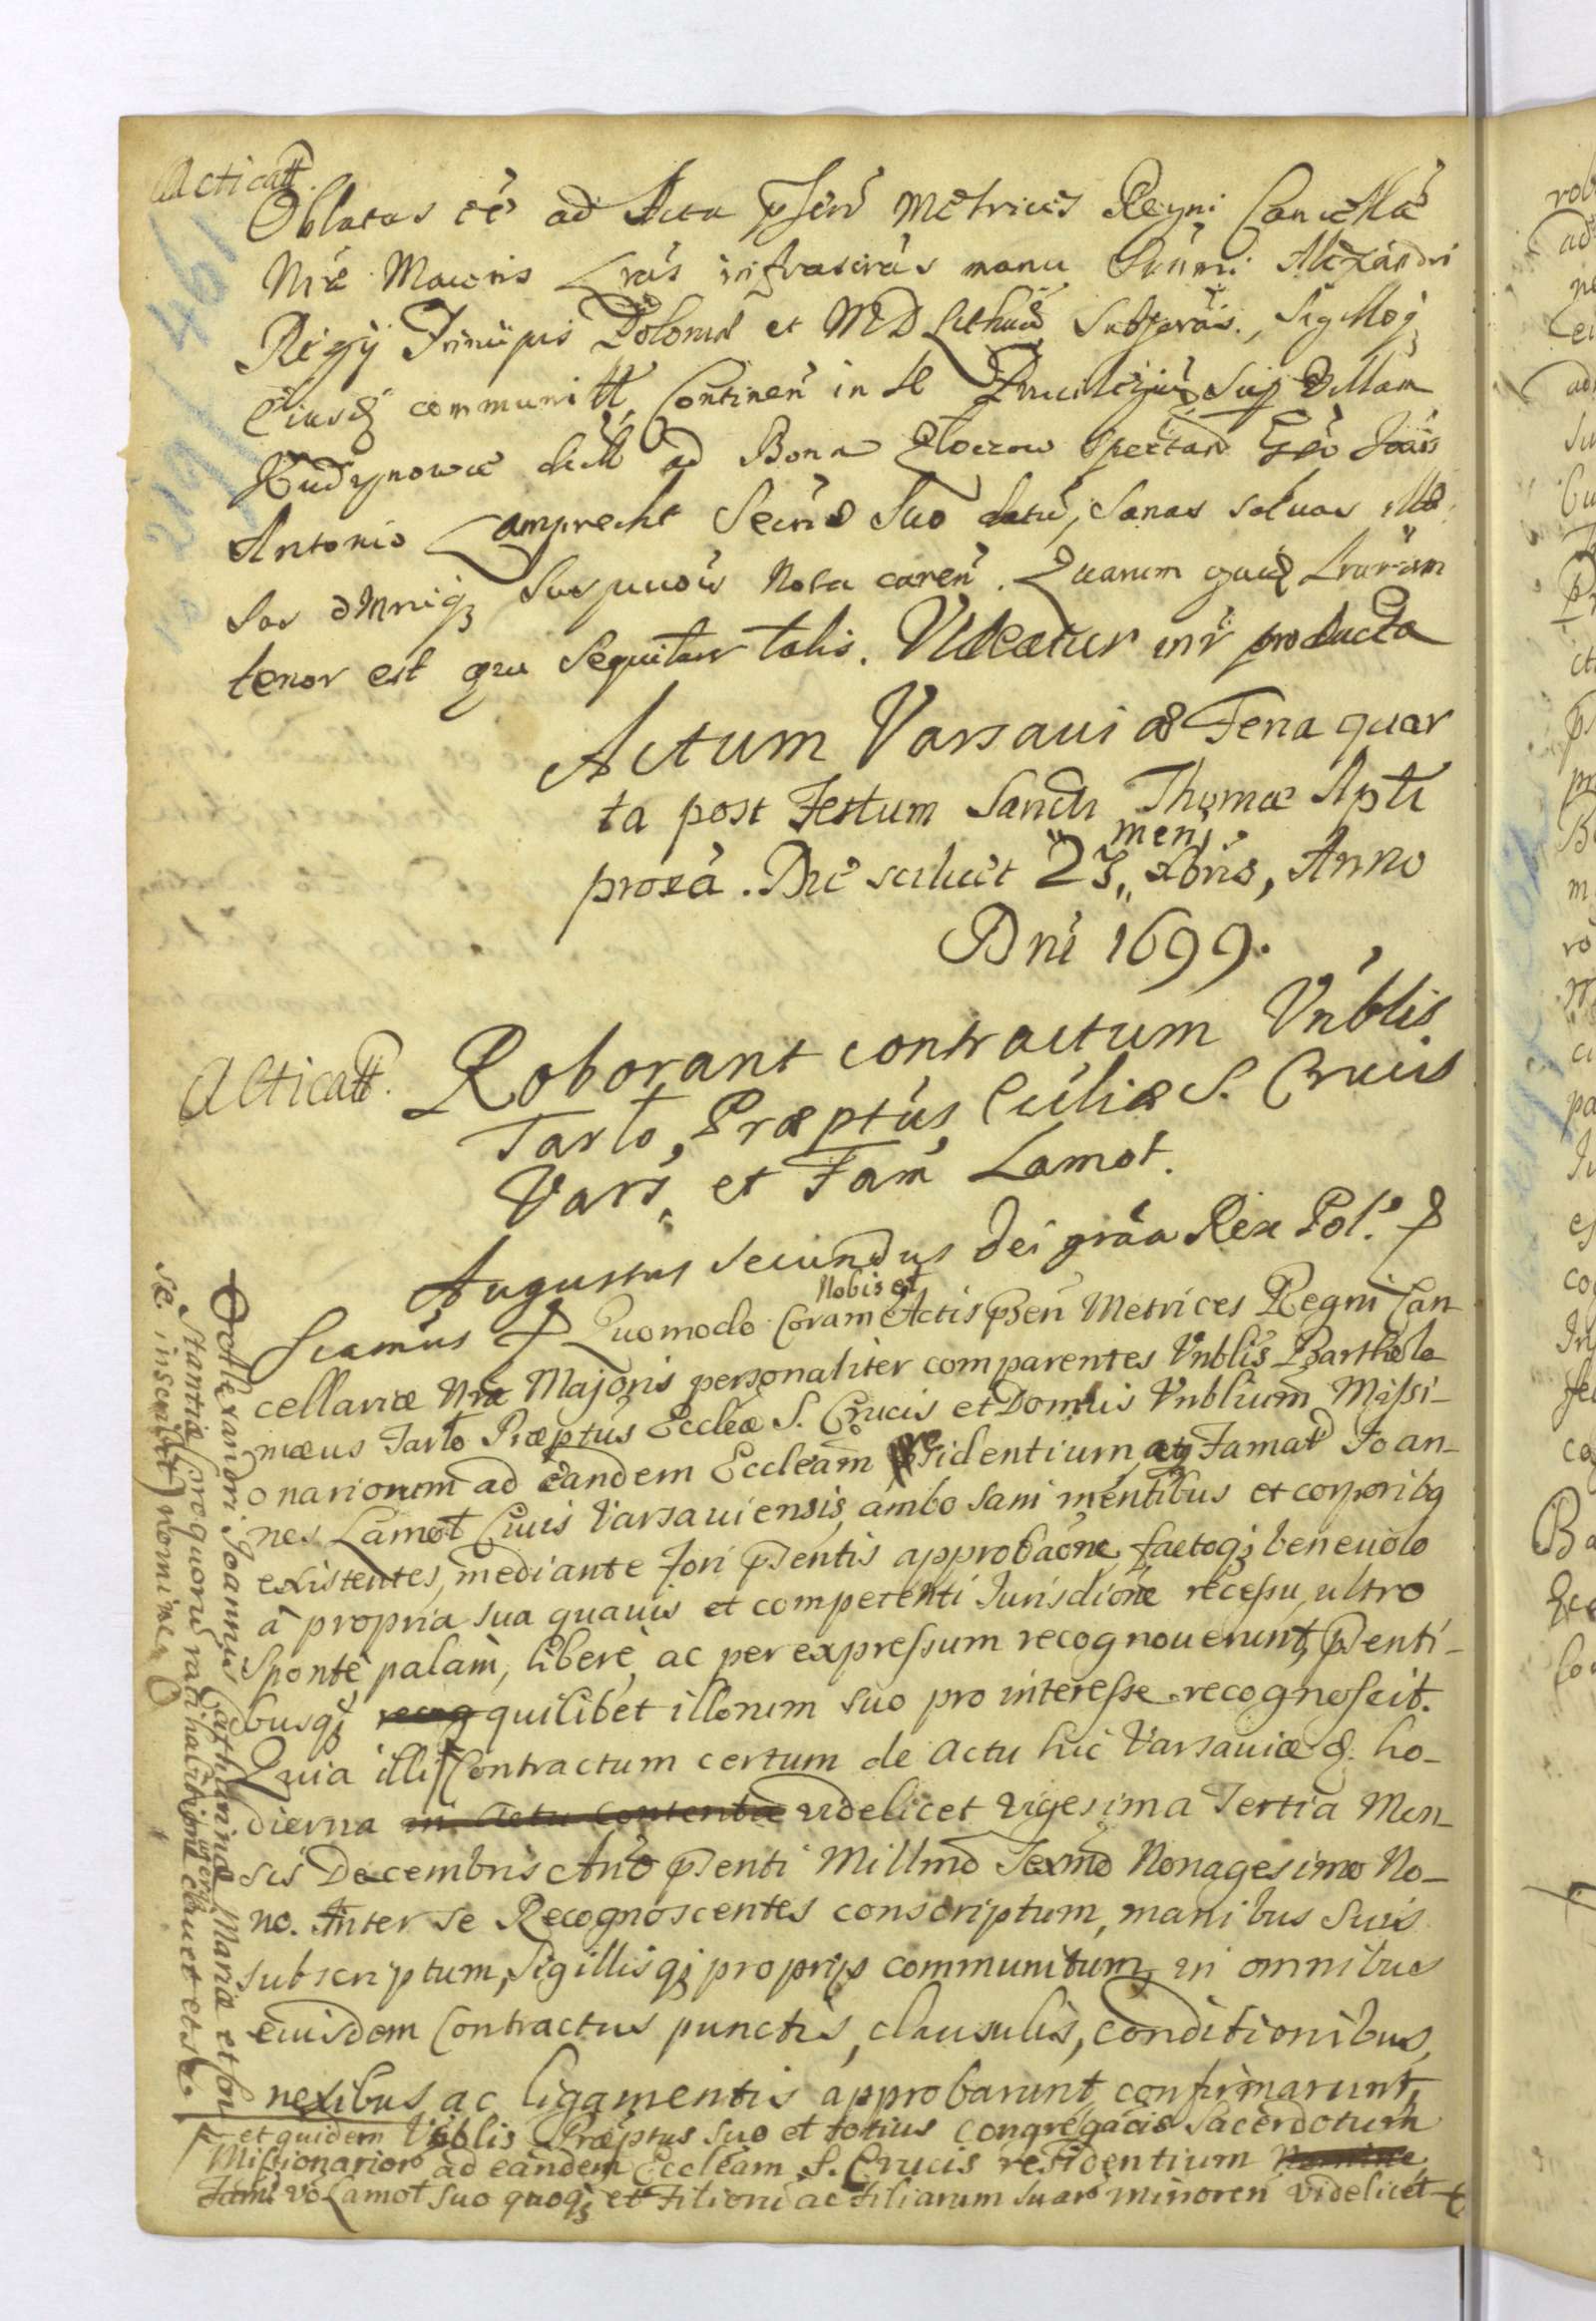 Acticatt.
Oblatas eē ad Acta pserī Metrices Regni Cancellae
Nrae Maioris Lrās infrascrās manu Sermi Alexandri
Regij Principis Poloniae et MD Lithuae subscras, Sigilloq
Eiusd communitt, Continen in se Priuilegiū Sup Villam
Kudynowce dictt ad Bona Zloczow spectan Gēo Joāis
Antonio Lamprecht Secrio Suo datū, Sanas saluas illae
sas omniq suspicioīs Nota caren. Quarum quid Lrarum
tenor est qui sequitur talis. Videatur inr producta
Actum Varsauiae Feria quar
ta post Festum Sancti Thomae Apti
proxa. Die scilicet 23 mens xbris, Anno
Dni 1699.
Acticatt. Roborant contractum Vnblis
Tarlo, Praeptus Ecclia S. Crucis
Vars, et Fam Lamot.
Augustus secundus Dei grāa Rex Pol.
Scamus Quomodo Coram Nobis et Actis psen Metrices Regni Can-
cellariae Nrae Majoris personaliter comparentes Vnblis Bartholo
maeus Tarlo Praeptus Eccleae S. Crucis et Domus Vnblium Missi-
onariorum ad eandem Eccleam residentium, ac Famat Joan-
nes Lamot Ciuis Varsauiensis, ambo sani mentibus et corporibq
existentes, mediante Fori psentis approbāone, factoq beneuolo
à propria sua quauis et competenti Jurisdione recessu, ultro
Sponte, palàm, liberè, ac per expressum recognouerunt, psenti-
busq recog quilibet illorum suo pro interesse recognoscit.
Quia illi Contractum certum de actu hic Varsauiae d. ho-
dierna in Actu contentae videlicet vigesima Tertia Men-
sis Decembris Anō psenti Millmō Sexmō Nonagesimo No-
no. Inter se Recognoscentes conscriptum, manibus suis
subscriptum, sigillisq proprijs communitum, in omnibus
eiusdem Contractus punctis, clausulis, conditionibus,
nexibus, ac ligamentis approbarunt, confirmarunt,
et quidem Vnblis Praeptus suo et totius congregācis Sacerdotum
Missionarior ad eandem Eccleam S. Crucis residentium Nomine
Fams vō Lamot suo quoq et Filiorū ac Filiarum suar minoren videlicet
Alexandri Joannis Catharinae Mariae et Con
stantiae pro quorū ratihabitione cauet et s
se inscribit nomine